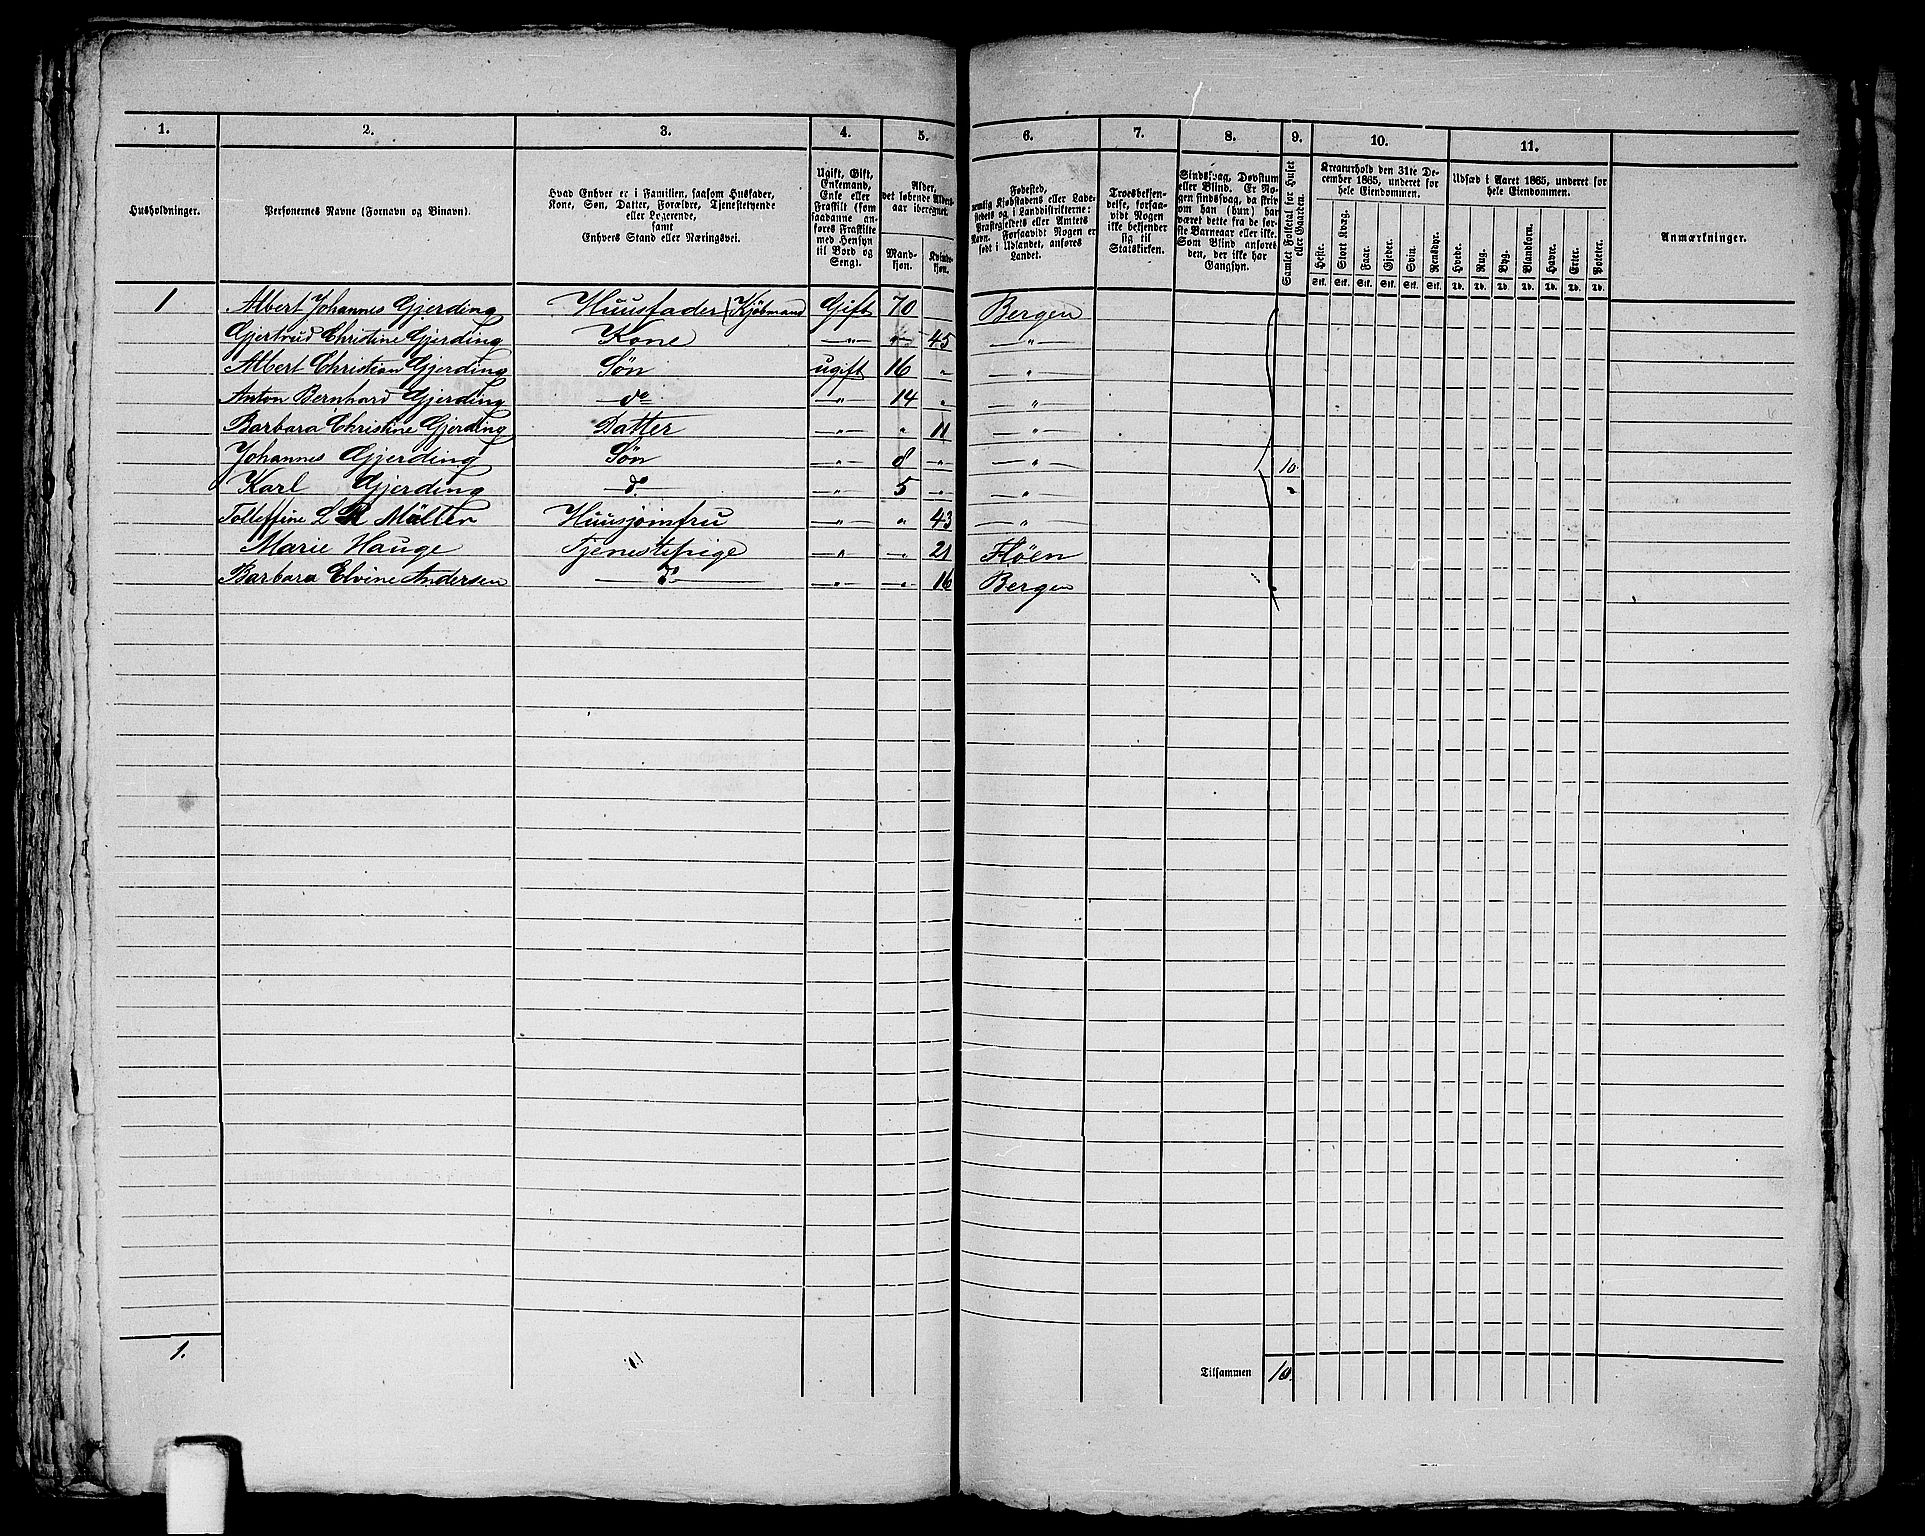 1. 2. 3. 4. 5. 6. 7. 8. 9. 10. 11.
Husholdninger.
Personernes Navne (Fornavn og Binavn).
Hvad Enhver er i Familien, saasom Husfader,
Kone, Søn, Datter, Forældre, Tjenestetyende
eller Logerende,
samt
Enhvers Stand eller Næringsvei.
Ugift, Gift,
Enkemand,
Enke eller
Fraskilt (som
saadanne an-
føres Fraskilte
med Hensyn
til Bord og
Seng).
Alder,
det løbende Alders-
aar iberegnet.
Mand-
kjøn.
Kvinde-
kjøn.
Fødested,
nemlig Kjøbstadens eller Lade-
stedets og i Landdistrikterne:
Præstegjeldets eller Amtets
Navn. Forsaavidt Nogen er
født i Udlandet, anføres
Landet.
Troesbekjen-
delse, forsaa-
vidt Nogen
ikke bekjender
sig til
Statskirken.
Sindssvag, Døvstum
eller Blind. Er No-
gen sindssvag, da skriv
om han (hun) har
været dette fra de før-
ste Barneaar eller ikke.
Som Blind anføres
den, der ikke har
Gangsyn.
Samlet Folketal for Huset
eller Gaarden.
Kreaturhold den 31te De-
cember 1865, underet for
hele Eiendommen.
Heste. Stort Kvæg. Faar. Gjeder. Svin. Rensdyr.
Stk. Stk. Stk. Stk. Stk. Stk.
Udsæd i Aaret 1865, underet for
hele Eiendommen.
Hvede. Rug. Byg. Blandkorn. Havre. Erter. Poteter.
Td. Td. Td. Td. Td. Td. Td.
Anmærkninger.
1 Albert Johannes Gjerding Huusfader Kjöbmand Gift 70 Bergen
Gjertrud Christine Gjerding Kone " " 45 "
Albert Christian Gjerding Søn ugift 16 " "
Anton Bernhard Gjerding do " 14 " "
Barbara Christine Gjerding Datter " " 11 "
Johannes Gjerding Søn " 8 " " 10
Karl Gjerding d. " 5 " "
Tolleffine L R Müller Huusjomfru " " 43 "
Marie Hauge Tjenestepige " " 21 Fløen
Barbara Elvine Andersen " " 16 Bergen
1.
Tilsammen 10.